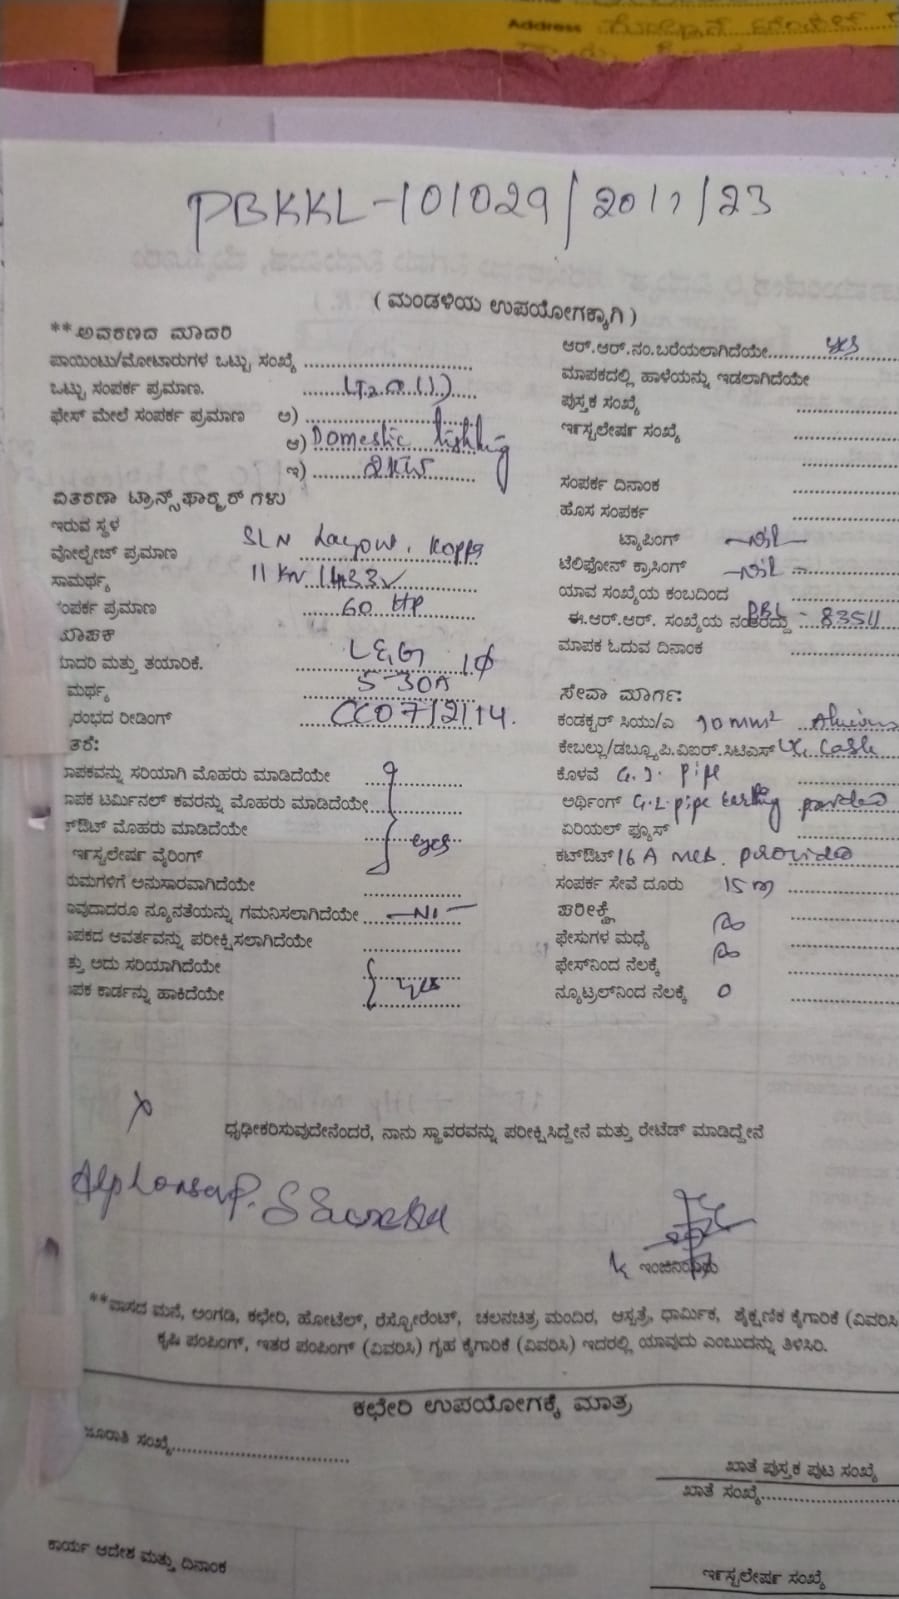 Address
PBKKL-101029/2011/23
( ಮಂಡಳಿಯ ಉಪಯೋಗಕ್ಕಾಗಿ )
**ಅವರಣದ ಮಾದರಿ
ಪಾಯಿಂಟು/ಮೋಟಾರುಗಳ ಒಟ್ಟು ಸಂಖ್ಯೆ
ಒಟ್ಟು ಸಂಪರ್ಕ ಪ್ರಮಾಣ.
ಫೇಸ್ ಮೇಲೆ ಸಂಪರ್ಕ ಪ್ರಮಾಣ ಅ)
ಆ) Domestic lighting
ಇ) 2KW
ವಿತರಣಾ ಟ್ರಾನ್ಸ್‌ಫಾರ್ಮರ್ ಗಳು
ಇರುವ ಸ್ಥಳ SLN Layout, Koppa
ವೋಲ್ಟೇಜ್ ಪ್ರಮಾಣ
ಸಾಮರ್ಥ್ಯ 11 KV
ಸಂಪರ್ಕ ಪ್ರಮಾಣ 60 HP
ಮಾಪಕ
ಮಾದರಿ ಮತ್ತು ತಯಾರಿಕೆ. L&G 1Φ
ಮರ್ಥ್ಯ 5-30A
ರಂಭದ ರೀಡಿಂಗ್
ತರೆ:
ಾಪಕವನ್ನು ಸರಿಯಾಗಿ ಮೊಹರು ಮಾಡಿದೆಯೇ
ಾಪಕ ಟರ್ಮಿನಲ್ ಕವರನ್ನು ಮೊಹರು ಮಾಡಿದೆಯೇ
ಕ್‌ಔಟ್ ಮೊಹರು ಮಾಡಿದೆಯೇ yes
ಇನ್‌ಸ್ಟಲೇಷನ್ ವೈರಿಂಗ್
ಯಮಗಳಿಗೆ ಅನುಸಾರವಾಗಿದೆಯೇ
ಾವುದಾದರೂ ನ್ಯೂನತೆಯನ್ನು ಗಮನಿಸಲಾಗಿದೆಯೇ
ಾಪಕದ ಆವರ್ತವನ್ನು ಪರೀಕ್ಷಿಸಲಾಗಿದೆಯೇ
ತ್ತು ಅದು ಸರಿಯಾಗಿದೆಯೇ
ಾಪಕ ಕಾರ್ಡನ್ನು ಹಾಕಿದೆಯೇ yes
ಆರ್.ಆರ್.ನಂ.ಬರೆಯಲಾಗಿದೆಯೇ yes
ಮಾಪಕದಲ್ಲಿ ಹಾಳೆಯನ್ನು ಇಡಲಾಗಿದೆಯೇ
ಪುಸ್ತಕ ಸಂಖ್ಯೆ
ಇನ್‌ಸ್ಟಲೇಷನ್ ಸಂಖ್ಯೆ
ಸಂಪರ್ಕ ದಿನಾಂಕ
ಹೊಸ ಸಂಪರ್ಕ
ಟ್ಯಾಪಿಂಗ್ —Nil—
ಟೆಲಿಫೋನ್ ಕ್ರಾಸಿಂಗ್ —Nil—
ಯಾವ ಸಂಖ್ಯೆಯ ಕಂಬದಿಂದ
ಈ.ಆರ್.ಆರ್. ಸಂಖ್ಯೆಯ ನಂತರದ್ದು PBL - 83511
ಮಾಪಕ ಓದುವ ದಿನಾಂಕ
ಸೇವಾ ಮಾರ್ಗ:
ಕಂಡಕ್ಟರ್ ಸಿಯು/ಎ 10 mm²
ಕೇಬಲ್ಲು/ಡಬ್ಲ್ಯೂ.ಪಿ.ವಿಐಆರ್.ಸಿಟಿಎಸ್
ಕೊಳವೆ G.I. pipe
ಅರ್ಥಿಂಗ್ G.I. pipe Earthing provided
ಏರಿಯಲ್ ಫ್ಯೂಸ್
ಕಟ್‌ಔಟ್ 16 A MCB. provided
ಸಂಪರ್ಕ ಸೇವೆ ದೂರು 15 m
ಪರೀಕ್ಷೆ
ಫೇಸುಗಳ ಮಧ್ಯೆ
ಫೇಸ್‌ನಿಂದ ನೆಲಕ್ಕೆ
ನ್ಯೂಟ್ರಲ್‌ನಿಂದ ನೆಲಕ್ಕೆ 0
X
ಧೃಢೀಕರಿಸುವುದೇನೆಂದರೆ, ನಾನು ಸ್ಥಾವರವನ್ನು ಪರೀಕ್ಷಿಸಿದ್ದೇನೆ ಮತ್ತು ರೇಟೆಡ್ ಮಾಡಿದ್ದೇನೆ
**ವಾಸದ ಮನೆ, ಅಂಗಡಿ, ಕಛೇರಿ, ಹೋಟೆಲ್, ರೆಸ್ಟೋರೆಂಟ್, ಚಲನಚಿತ್ರ ಮಂದಿರ, ಆಸ್ಪತ್ರೆ, ಧಾರ್ಮಿಕ, ಶೈಕ್ಷಣಿಕ ಕೈಗಾರಿಕೆ (ವಿವರಿಸಿ
ಕೃಷಿ ಪಂಪಿಂಗ್, ಇತರ ಪಂಪಿಂಗ್ (ವಿವರಿಸಿ) ಗೃಹ ಕೈಗಾರಿಕೆ (ವಿವರಿಸಿ) ಇದರಲ್ಲಿ ಯಾವುದು ಎಂಬುದನ್ನು ತಿಳಿಸಿರಿ.
ಕಛೇರಿ ಉಪಯೋಗಕ್ಕೆ ಮಾತ್ರ
ಜೂರಾತಿ ಸಂಖ್ಯೆ
ಖಾತೆ ಪುಸ್ತಕ ಪುಟ ಸಂಖ್ಯೆ
ಖಾತೆ ಸಂಖ್ಯೆ
ಕಾರ್ಯ ಆದೇಶ ಮತ್ತು ದಿನಾಂಕ
ಇನ್‌ಸ್ಟಲೇಷನ್ ಸಂಖ್ಯೆ